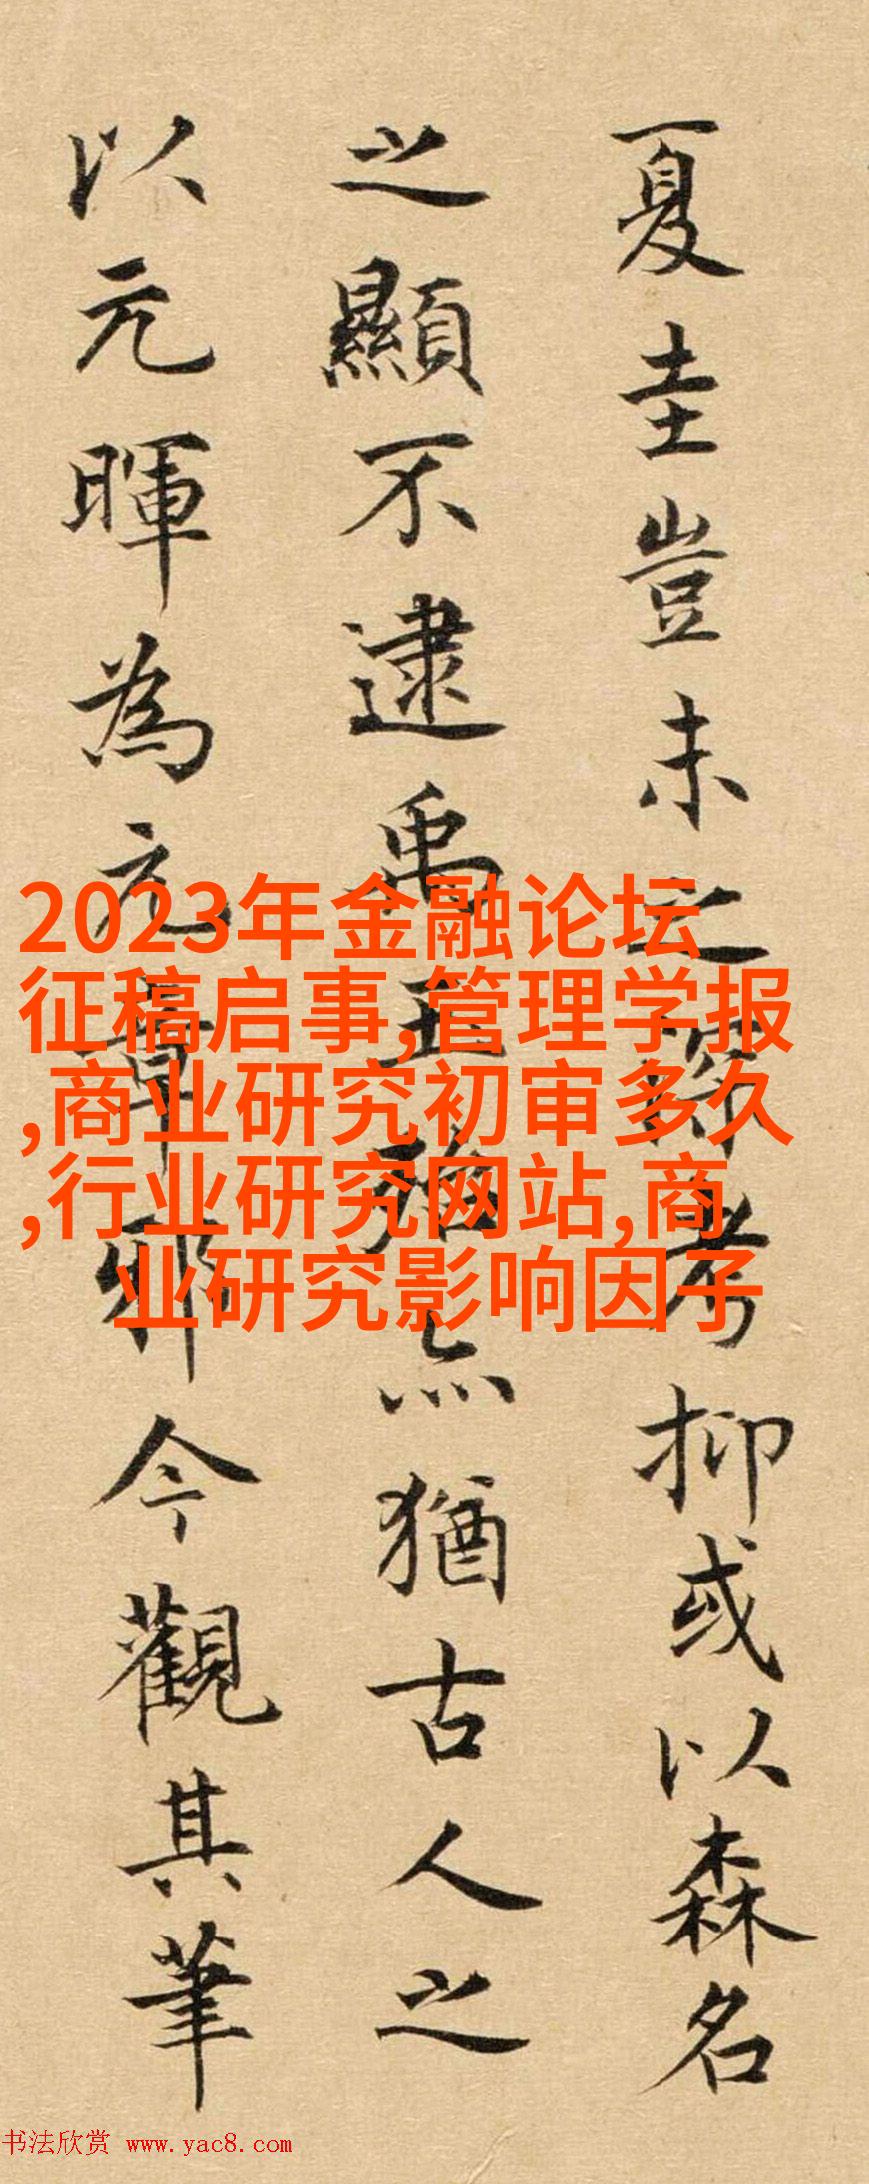 夏圭豈未之深考抑或以森名
之顯不逮禹玉殆亦猶古人之
以元暉為元章邪今觀其筆
2023年金融论坛
征稿启事,管理学报
,商业研究初审多久
,行业研究网站,商
业研究影响因子
书法欣赏 www.yac8.com